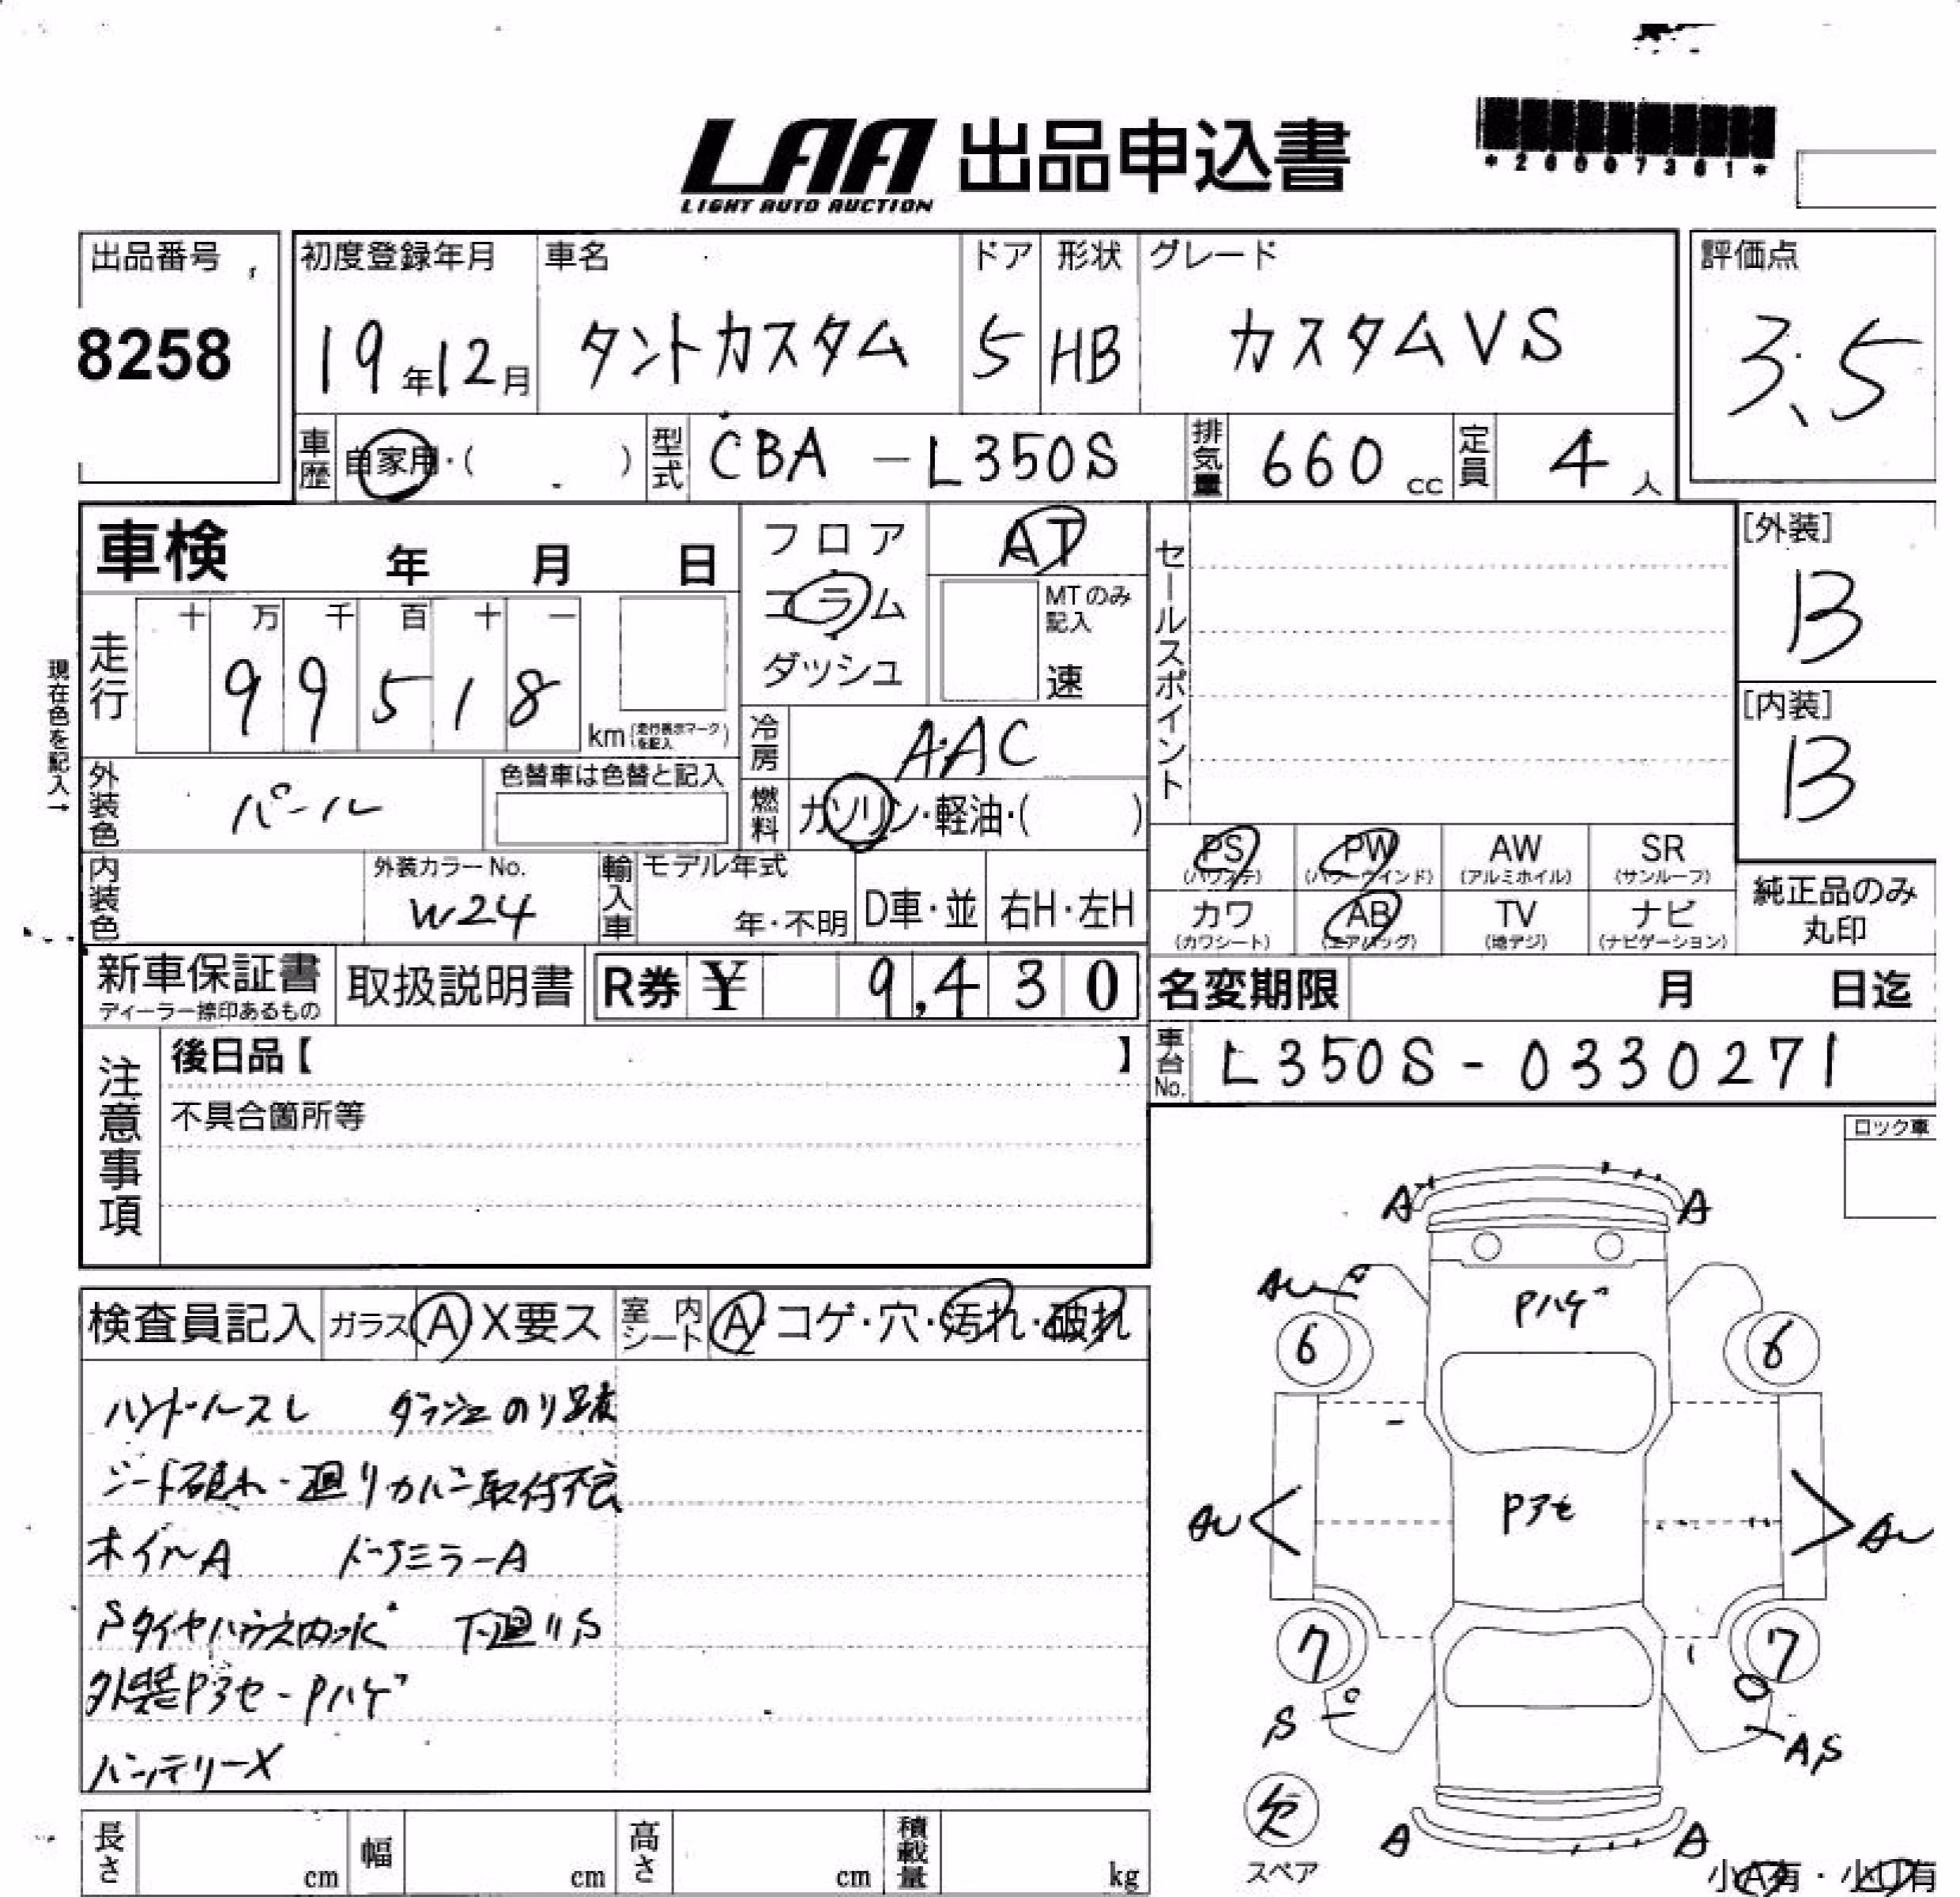 LAA 出品申込書
LIGHT AUTO AUCTION
*26007361*
出品番号 初度登録年月 車名 ドア 形状 グレード 評価点
8258 19年12月 タントカスタム 5 HB カスタムVS 3.5
車歴 自家用・( ) 型式 CBA-L350S 排気量 660cc 定員 4人
車検 年 月 日 フロア AT セールスポイント [外装]
B
コラム MTのみ記入
ダッシュ 速
現在色を記入→
走行 十 万 千 百 十 一
99518 km(走行表示マークを記入) [内装]
B
冷房 AAC
外装色 パール 色替車は色替と記入 燃料 ガソリン・軽油・( )
PS(パワステ) PW(パワーウインド) AW(アルミホイル) SR(サンルーフ)
内装色 外装カラーNo. W24 輸入車 モデル年式 年・不明 D車・並 右H・左H
カワ(カワシート) AB(エアバッグ) TV(地デジ) ナビ(ナビゲーション) 純正品のみ丸印
新車保証書 ディーラー捺印あるもの 取扱説明書 R券 ¥ 9,430 名変期限 月 日迄
注意事項 後日品【 】 車台No. L350S-0330271
不具合箇所等
ロック車
検査員記入 ガラス A X要ス 室内シート A・コゲ・穴・汚れ・破れ
ハンドルスレ ダッシュのり跡
シート破れ・廻りカバー取付不良
ホイルA ドアミラーA
Sタイヤハウス内 下廻りS
外装Pアセ-Pハゲ
バッテリーX
A A
AU Pハゲ
6 6
AU Pアセ AU
7 7
S AS
欠 A A
スペア
小A有・小U有
長さ cm 幅 cm 高さ cm 積載量 kg